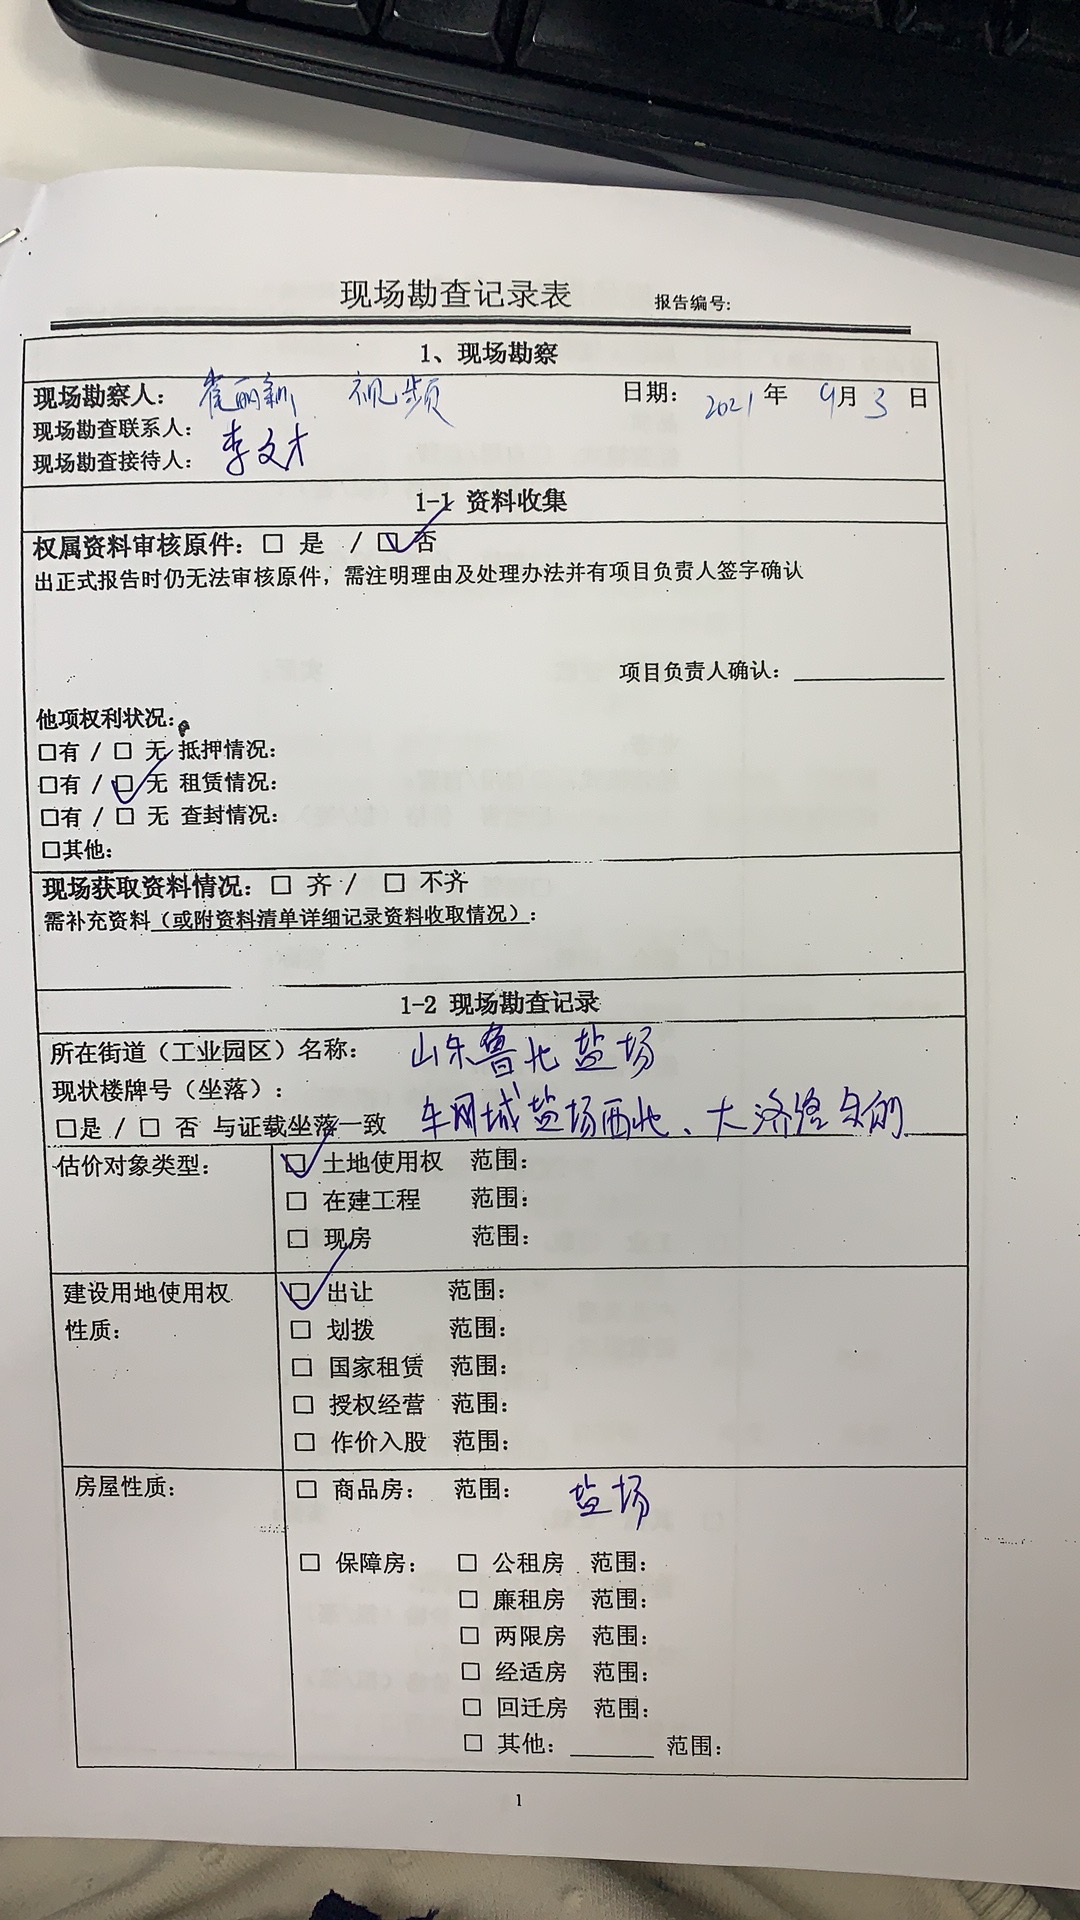 现场勘查记录表 报告编号:
1、现场勘察
现场勘察人: 崔丽新 视频 日期: 2021年 9月3日
现场勘查联系人:
现场勘查接待人: 李文才
1-1 资料收集
权属资料审核原件: □ 是 / ☑ 否
出正式报告时仍无法审核原件，需注明理由及处理办法并有项目负责人签字确认
项目负责人确认:
他项权利状况:
□有 / □ 无 抵押情况:
□有 / ☑ 无 租赁情况:
□有 / □ 无 查封情况:
□其他:
现场获取资料情况: □ 齐 / □ 不齐
需补充资料(或附资料清单详细记录资料收取情况):
1-2 现场勘查记录
所在街道(工业园区)名称: 山东鲁北盐场
现状楼牌号(坐落):
□是 / □ 否 与证载坐落一致 车网城盐场西北、大济路
估价对象类型: ☑ 土地使用权 范围:
□ 在建工程 范围:
□ 现房 范围:
建设用地使用权性质: ☑ 出让 范围:
□ 划拨 范围:
□ 国家租赁 范围:
□ 授权经营 范围:
□ 作价入股 范围:
房屋性质: □ 商品房: 范围: 盐场
□ 保障房: □ 公租房 范围:
□ 廉租房 范围:
□ 两限房 范围:
□ 经适房 范围:
□ 回迁房 范围:
□ 其他:______ 范围:
1